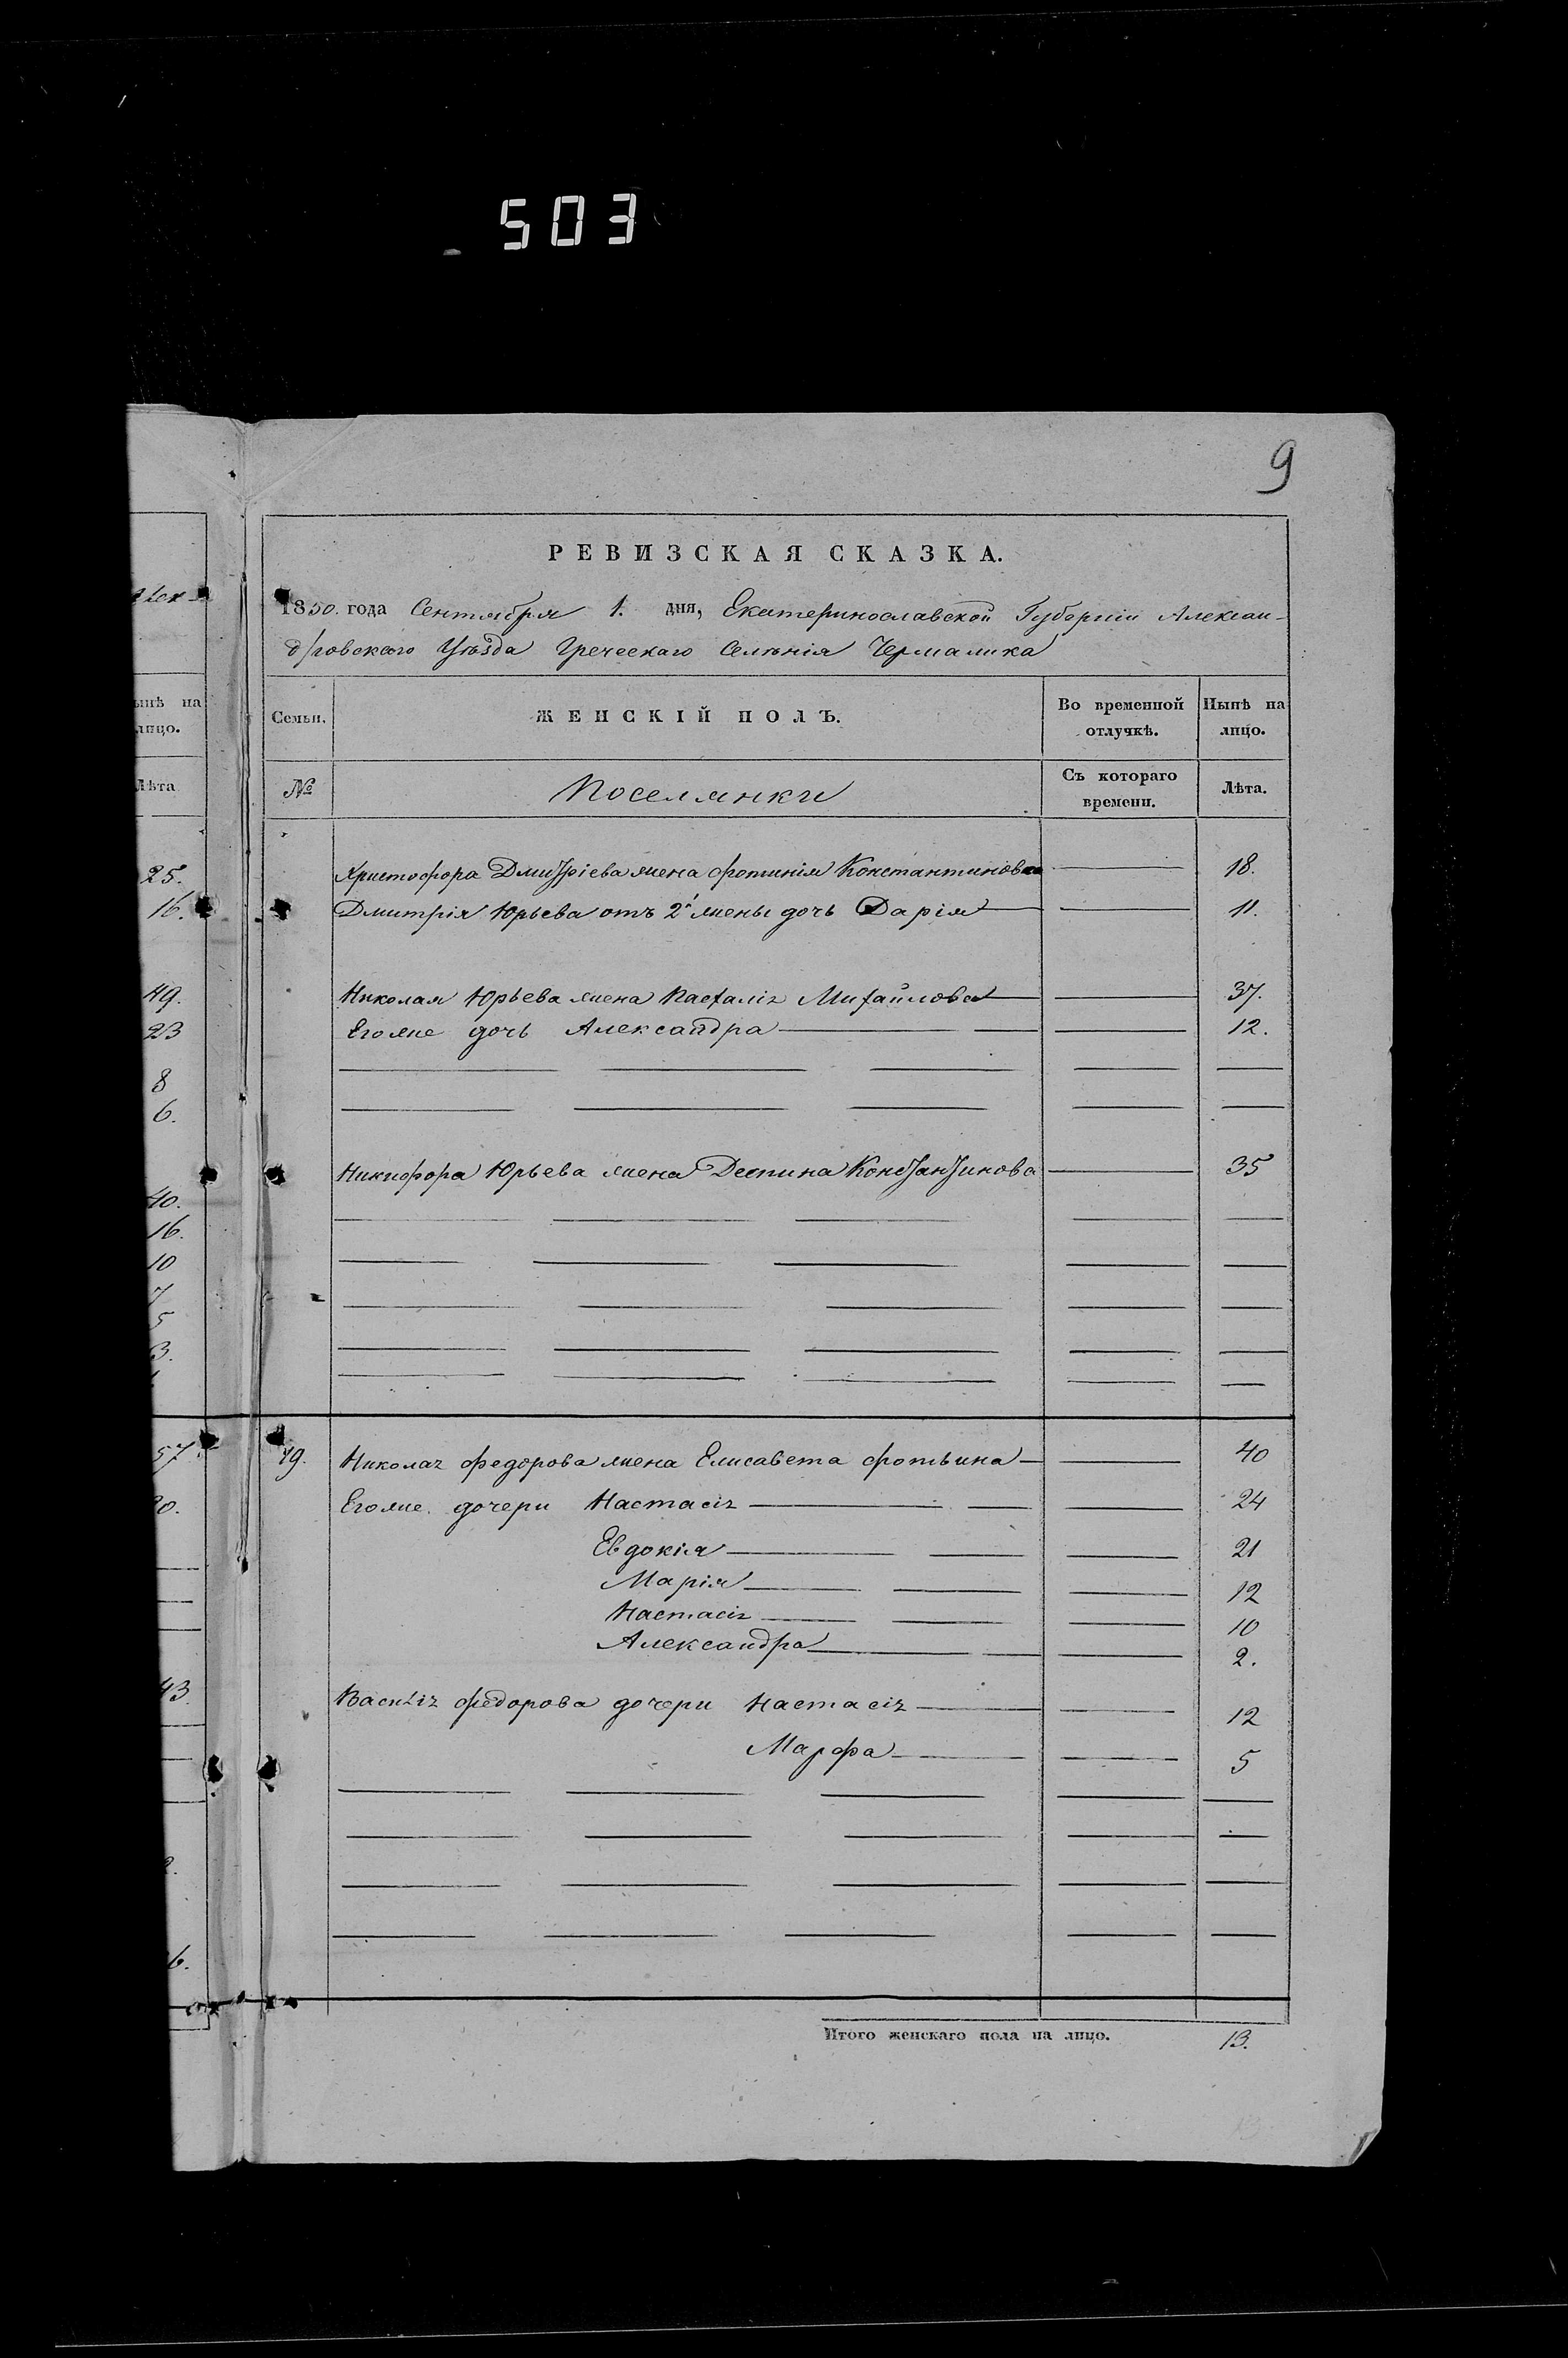 503
9
РЕВИЗСКАЯ СКАЗКА.
1850. года Сентября 1. дня, Екатеринославской Губерніи Алексан-
дровского Уѣзда Греческаго Селенія Чермалика
Семьи.
ЖЕНСКІЙ ПОЛЪ.
Во временной отлучкѣ.
Нынѣ на лицо.
№
Поселянки
Съ котораго времени.
Лѣта.
Христофора Дмитріева жена Фотинія Константинова 18.
Дмитрія Юрьева отъ 2й жены дочь Дарія 11.
Николая Юрьева жена Пасхалія Михайлова 37.
Егоже дочь Александра 12.
Никифора Юрьева жена Деспина Константинова 35
19. Николая Федорова жена Елисавета Фотьина 40
Егоже. дочери Настасія 24
Евдокія 21
Марія 12
Настасія 10
Александра 2.
Василія Федорова дочери Настасія 12
Марфа 5
Итого женскаго пола на лицо. 13.
нынѣ на
лицо.
Лѣта
25.
16.
49.
23
8
6.
40.
16.
10
7
5
3.
57
43.